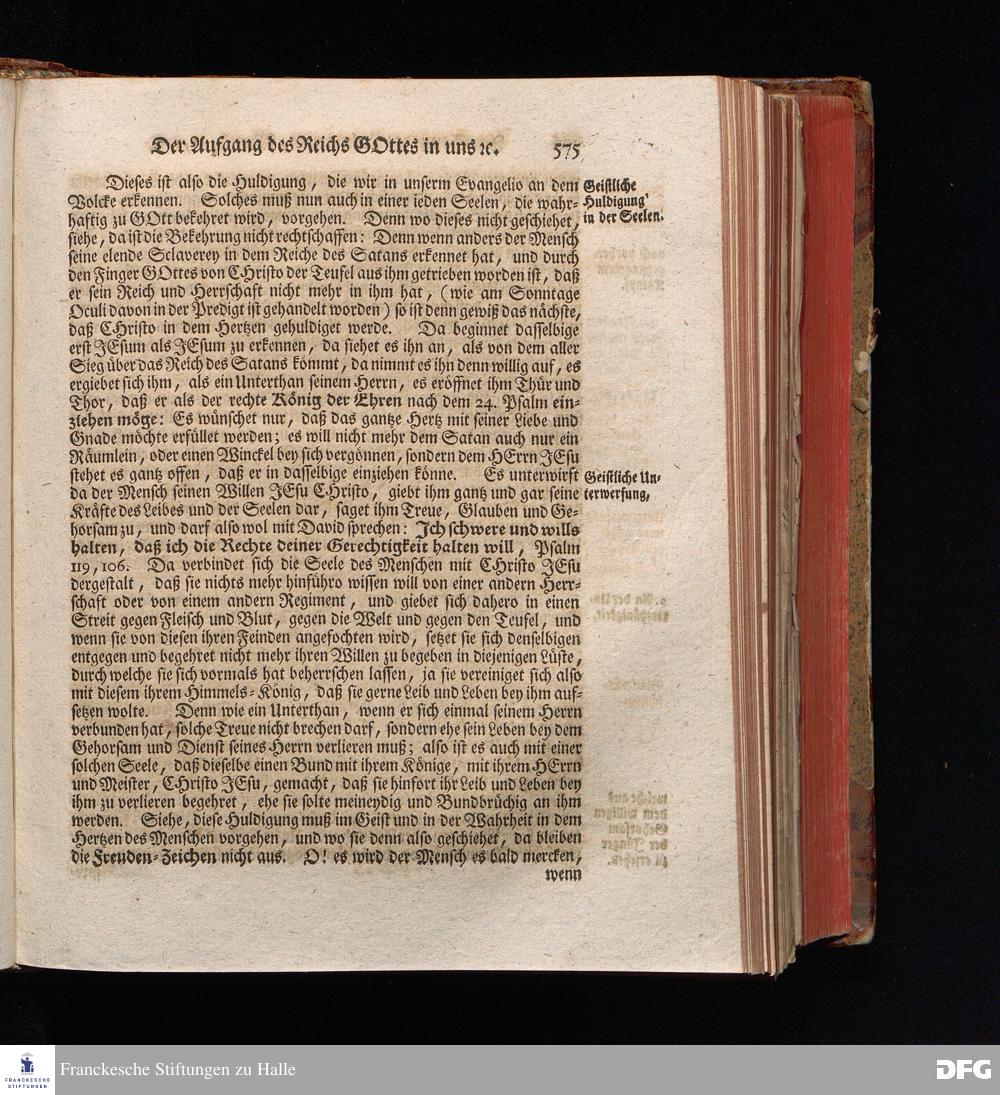 Der Aufgang des Reichs GOttes in uns ꝛc. 575
Dieses ist also die Huldigung, die wir in unserm Evangelio an dem
Volcke erkennen. Solches muß nun auch in einer ieden Seelen, die wahr-
haftig zu GOtt bekehret wird, vorgehen. Denn wo dieses nicht geschiehet,
siehe, da ist die Bekehrung nicht rechtschaffen: Denn wenn anders der Mensch
seine elende Sclaverey in dem Reiche des Satans erkennet hat, und durch
den Finger GOttes von CHristo der Teufel aus ihm getrieben worden ist, daß
er sein Reich und Herrschaft nicht mehr in ihm hat, (wie am Sonntage
Oculi davon in der Predigt ist gehandelt worden) so ist denn gewiß das nächste,
daß CHristo in dem Hertzen gehuldiget werde. Da beginnet dasselbige
erst JEsum als JEsum zu erkennen, da siehet es ihn an, als von dem aller
Sieg über das Reich des Satans kömmt, da nimmt es ihn denn willig auf, es
ergiebet sich ihm, als ein Unterthan seinem Herrn, es eröffnet ihm Thür und
Thor, daß er als der rechte König der Ehren nach dem 24. Psalm ein-
ziehen möge: Es wünschet nur, daß das gantze Hertz mit seiner Liebe und
Gnade möchte erfüllet werden; es will nicht mehr dem Satan auch nur ein
Räumlein, oder einen Winckel bey sich vergönnen, sondern dem HErrn JESu
stehet es gantz offen, daß er in dasselbige einziehen könne. Es unterwirft
da der Mensch seinen Willen JEsu CHristo, giebt ihm gantz und gar seine
Kräfte des Leibes und der Seelen dar, saget ihm Treue, Glauben und Ge-
horsam zu, und darf also wol mit David sprechen: Ich schwere und wills
halten, daß ich die Rechte deiner Gerechtigkeit halten will, Psalm
119, 106. Da verbindet sich die Seele des Menschen mit CHristo JEsu
dergestalt, daß sie nichts mehr hinführo wissen will von einer andern Herr-
schaft oder von einem andern Regiment, und giebet sich dahero in einen
Streit gegen Fleisch und Blut, gegen die Welt und gegen den Teufel, und
wenn sie von diesen ihren Feinden angefochten wird, setzet sie sich denselbigen
entgegen und begehret nicht mehr ihren Willen zu begeben in diejenigen Lüste,
durch welche sie sich vormals hat beherrschen lassen, ja sie vereiniget sich also
mit diesem ihrem Himmels-König, daß sie gerne Leib und Leben bey ihm auf-
setzen wolte. Denn wie ein Unterthan, wenn er sich einmal seinem Herrn
verbunden hat, solche Treue nicht brechen darf, sondern ehe sein Leben bey dem
Gehorsam und Dienst seines Herrn verlieren muß; also ist es auch mit einer
solchen Seele, daß dieselbe einen Bund mit ihrem Könige, mit ihrem HErrn
und Meister, CHristo JEsu, gemacht, daß sie hinfort ihr Leib und Leben bey
ihm zu verlieren begehret, ehe sie solte meineydig und Bundbrüchig an ihm
werden. Siehe, diese Huldigung muß im Geist und in der Wahrheit in dem
Hertzen des Menschen vorgehen, und wo sie denn also geschiehet, da bleiben
die Freuden-Zeichen nicht aus. O! es wird der Mensch es bald mercken,
wenn
Geistliche
Huldigung
in der Seelen.
Geistliche Un-
terwerfung,
FRANCKESCHE
STIFTUNGEN
Franckesche Stiftungen zu Halle
DFG